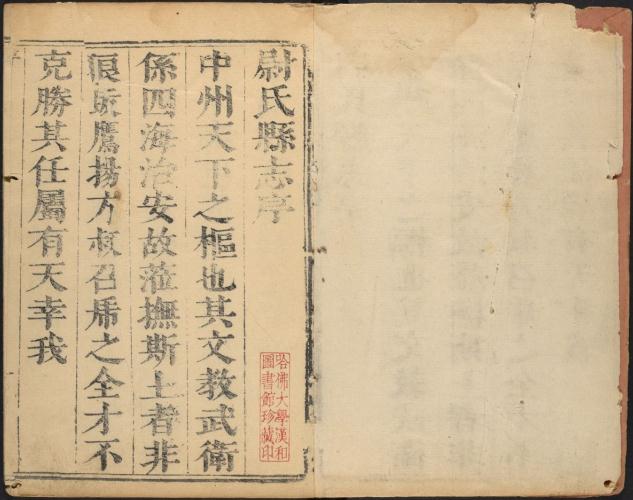 尉氏縣志序
中州天下之樞也其文教武衛
係四海治安故蒞撫斯土者非
鷹揚方叔召虎之全才不
克勝其任屬有天幸我
哈佛大學漢和
圖書館珍藏印